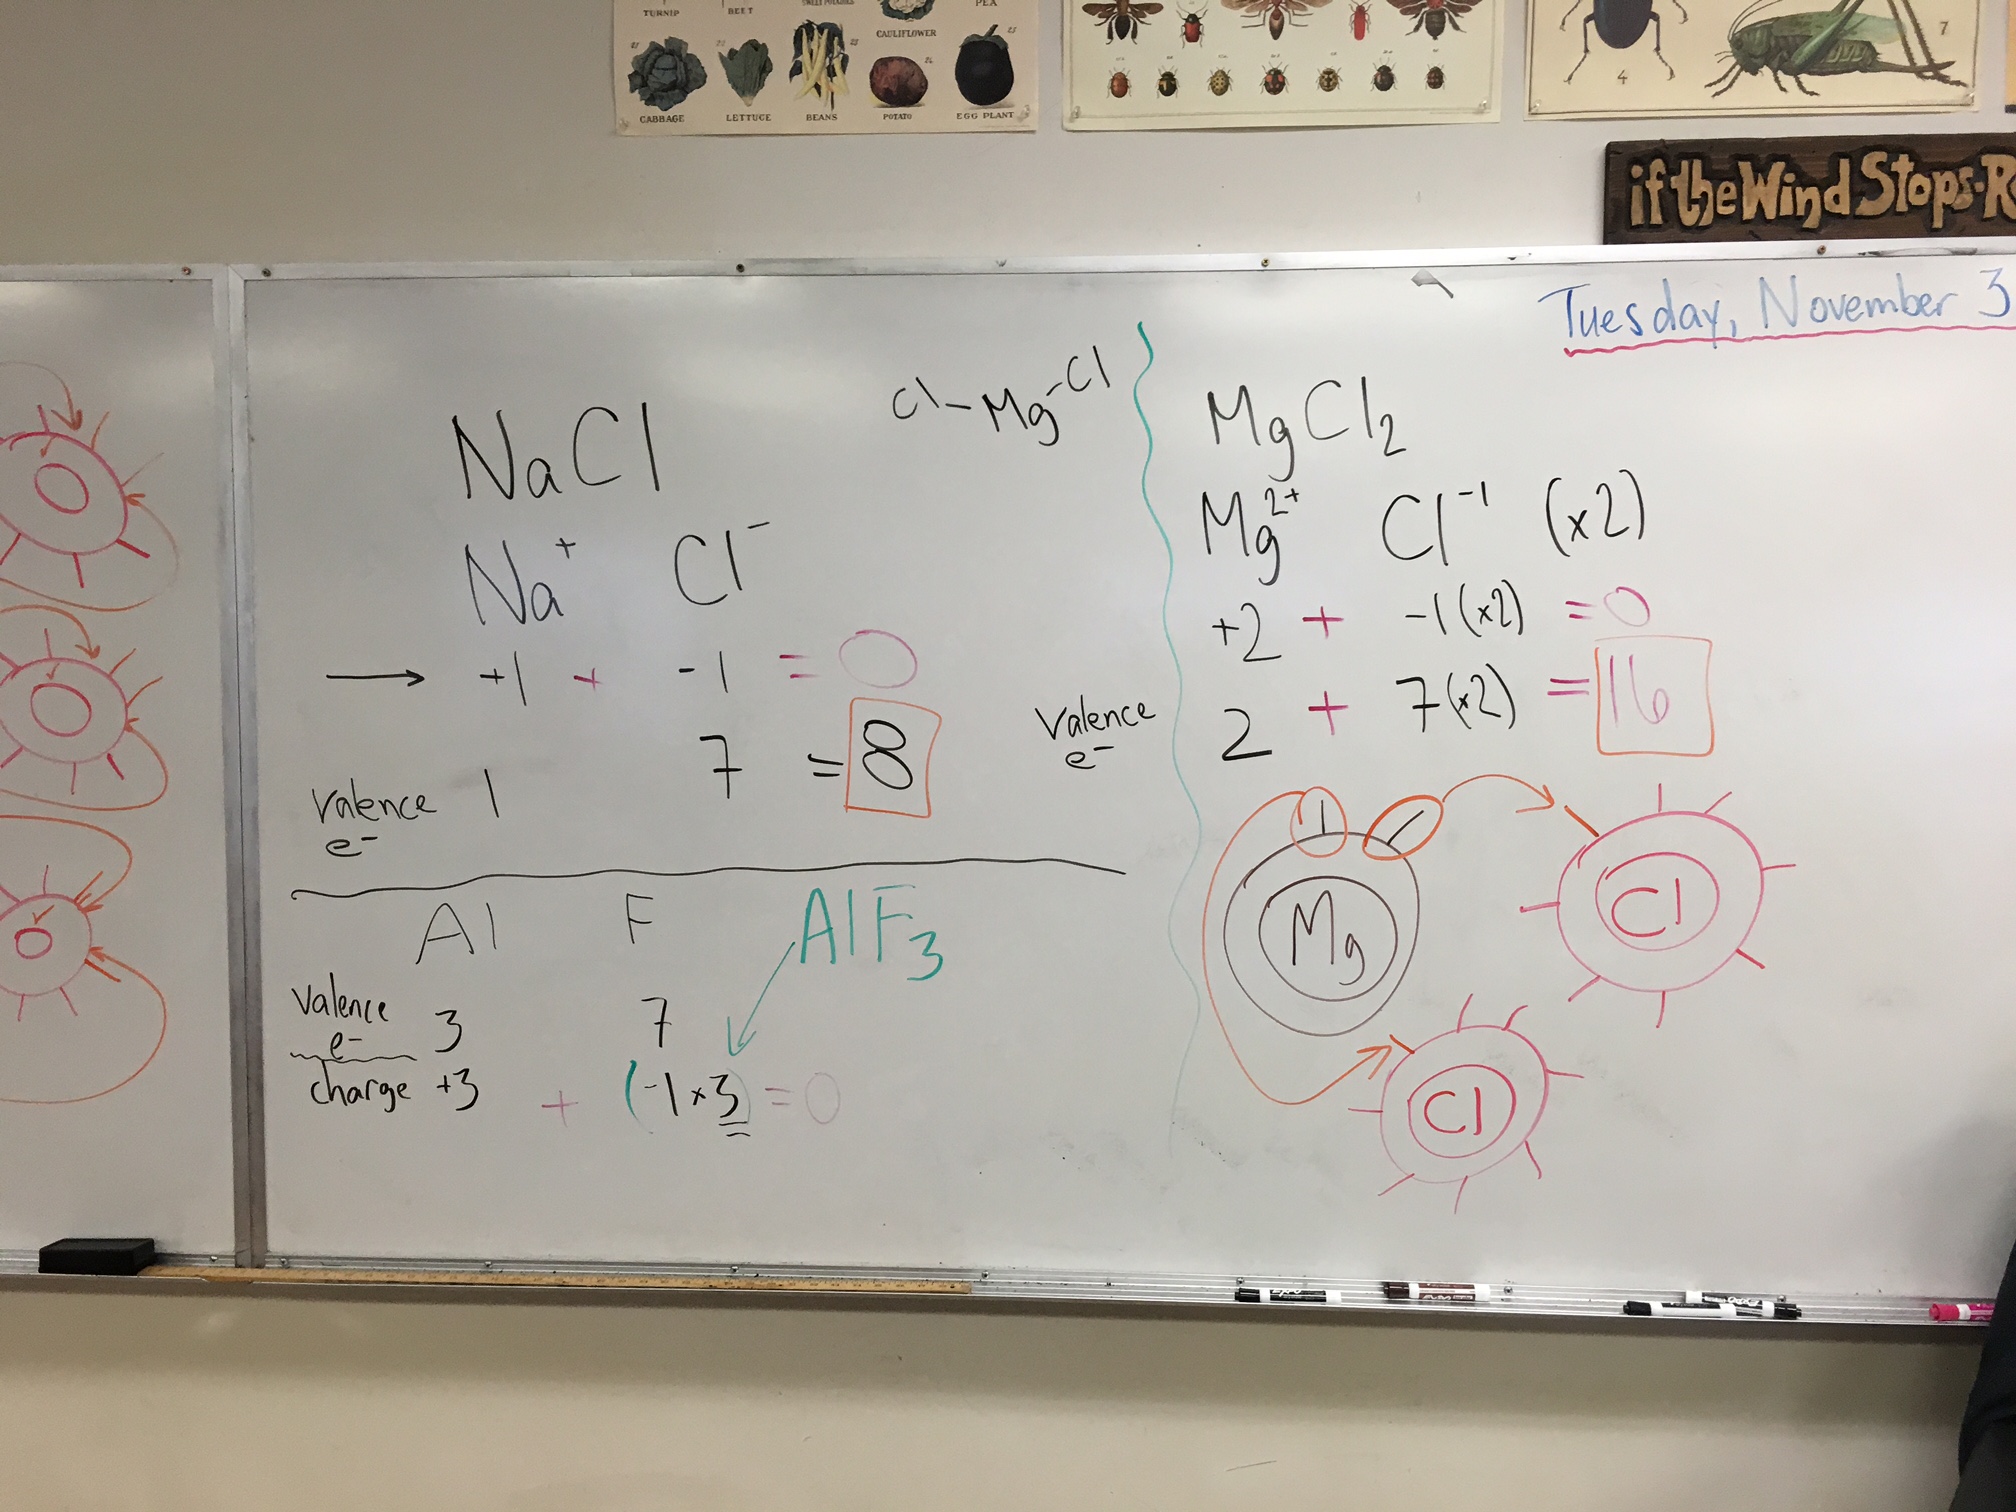 TURNIP BEET PEA
CAULIFLOWER
CABBAGE LETTUCE BEANS POTATO EGG PLANT
4
7
if the Wind Stops-R
Tuesday, November 3
NaCl
Na⁺ Cl⁻
+1 + -1 = 0
valence e- 1 7 = 8
Cl-Mg-Cl
MgCl₂
Mg²⁺ Cl⁻¹ (x2)
+2 + -1(x2) = 0
Valence e- 2 + 7(x2) = 16
Mg
Cl
Cl
Al F AlF₃
Valence e- 3 7
charge +3 + (-1x3) = 0
EXPO